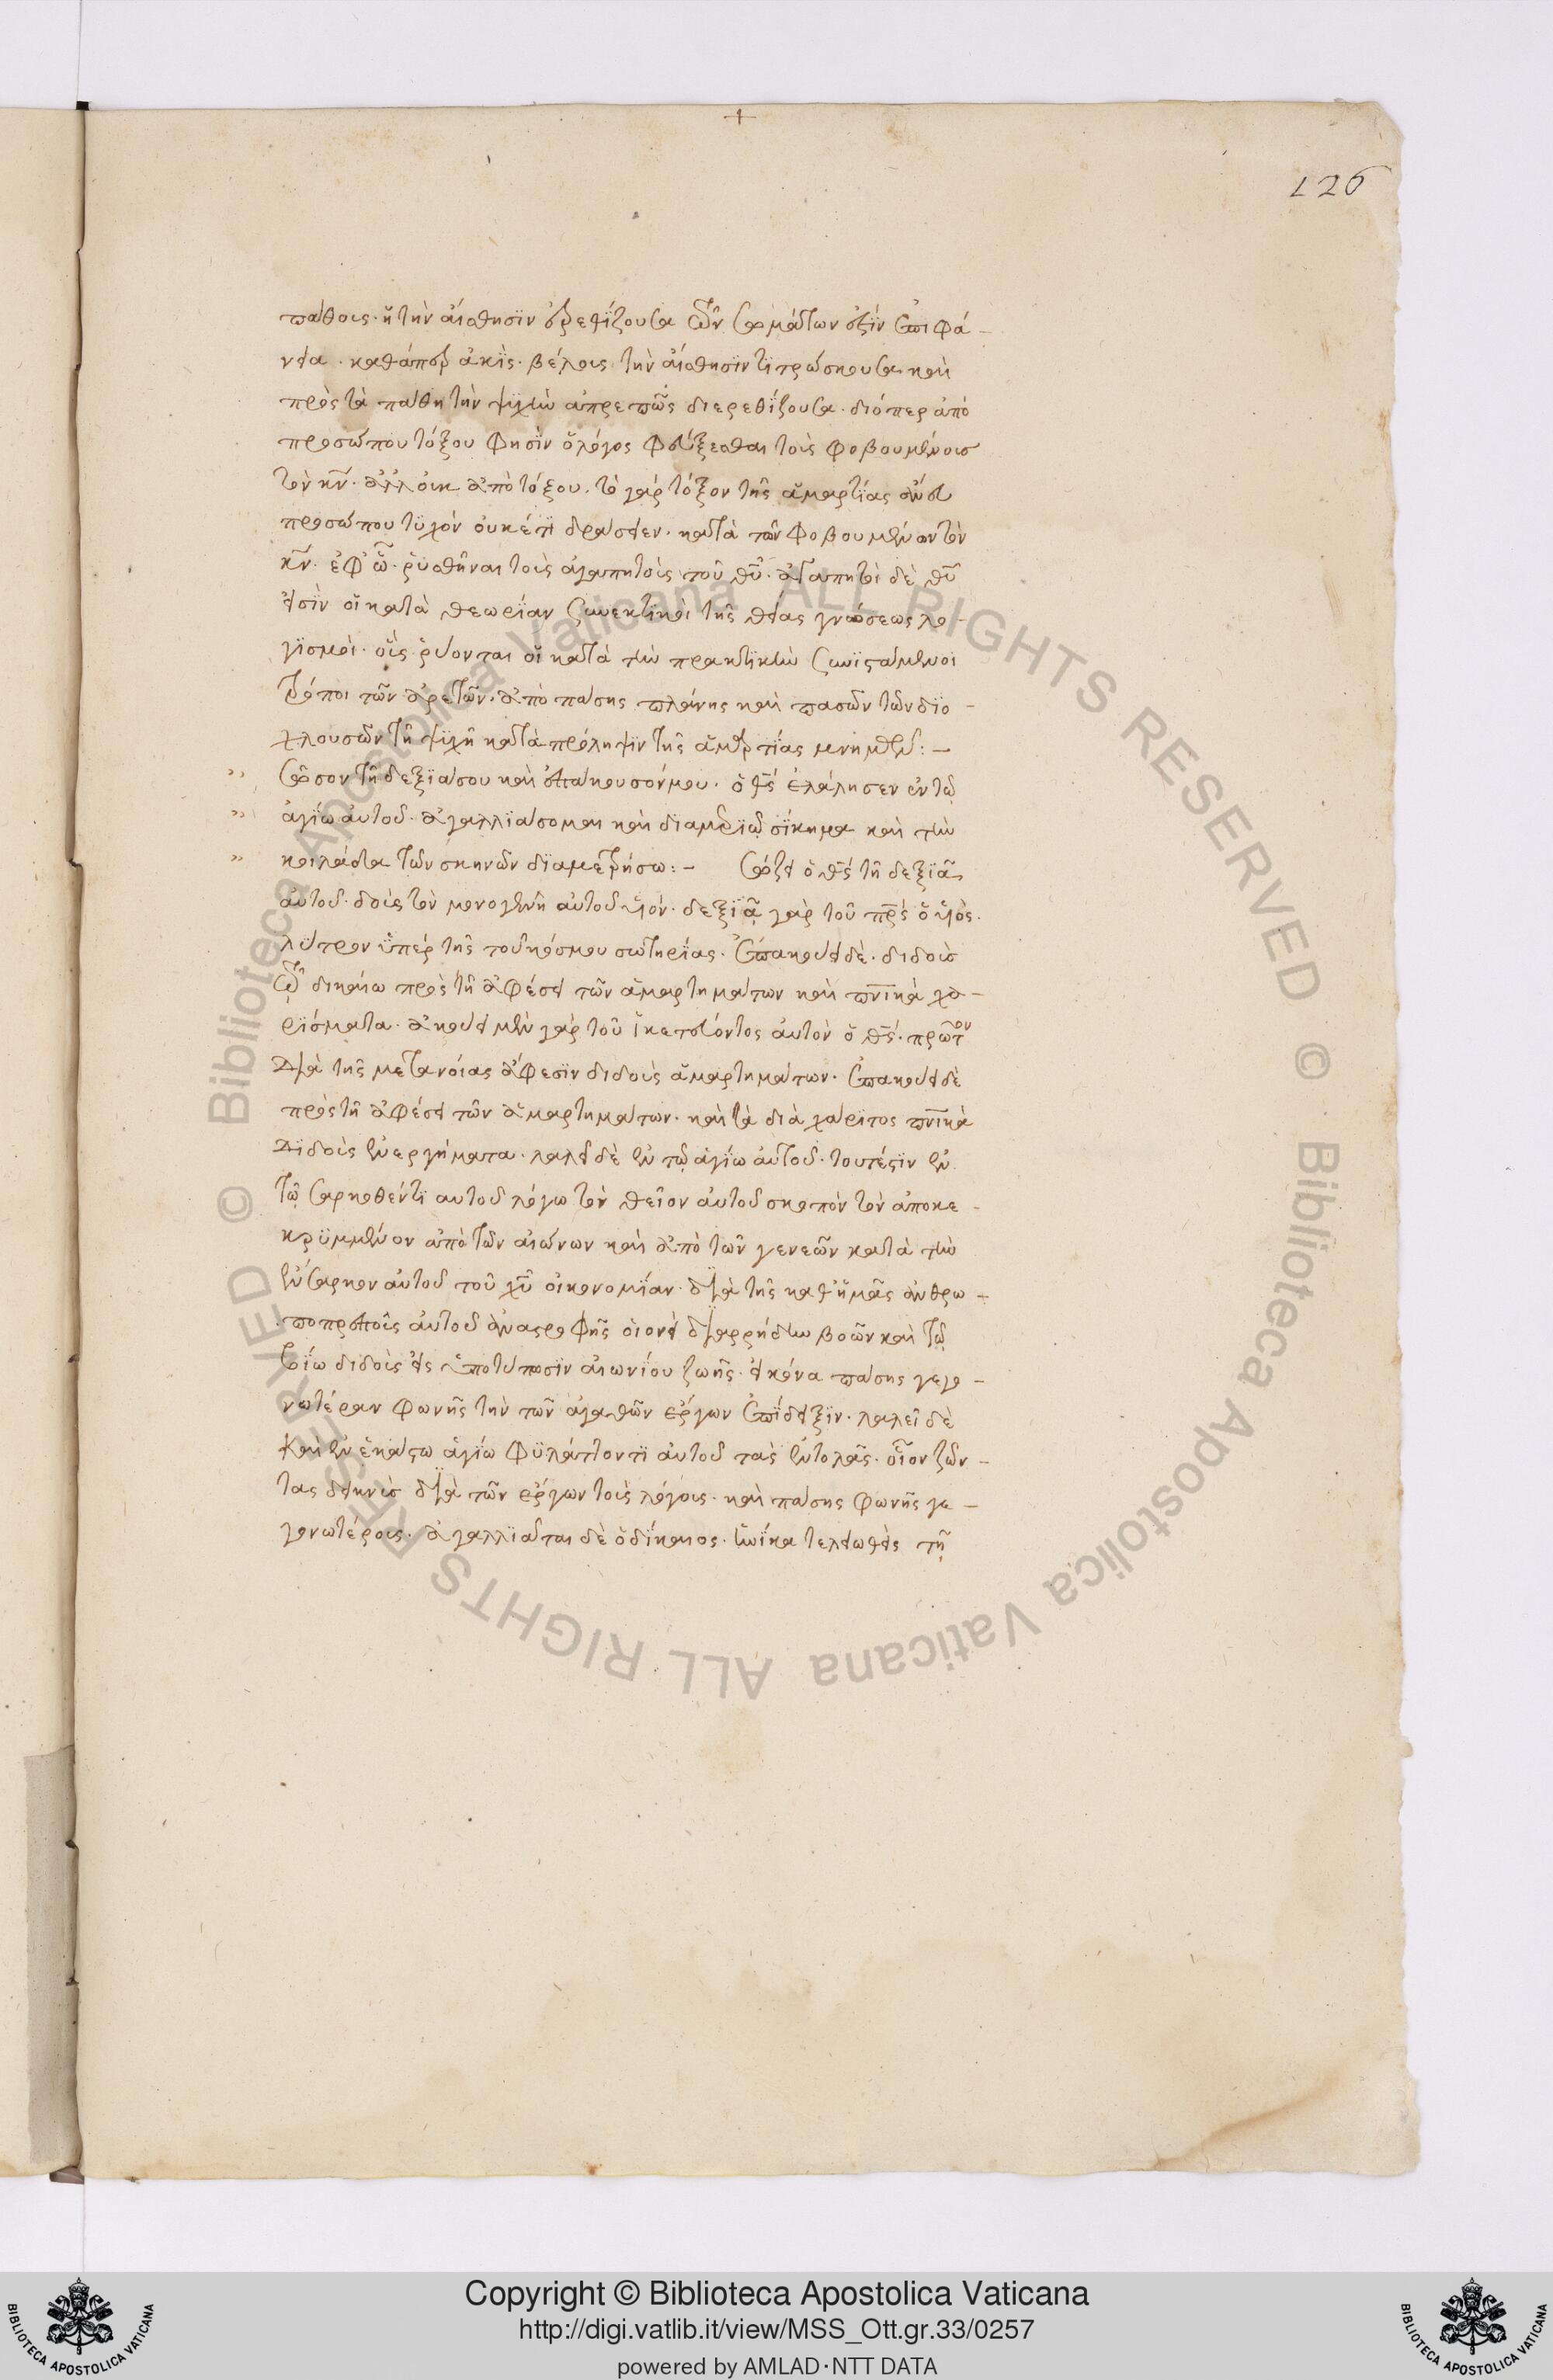 126
πάθοις· ἢ τὴν αἴσθησϊν ἐρεθίζουσα τῶν σωμάτων ἐστὶν ἐπιφά-
νεια· καθάπερ ἀκὶς· βέλοις τὴν αἴσθησιν τιτρώσκουσα καὶ
πρὸς τὰ πάθη τὴν ψυχὴν ἀπρεπῶς διερεθίζουσα· διόπερ ἀπὸ
προσώπου τόξου φησὶν ὁ λόγος φεύξεσθαι τοὺς φοβουμένοις
τὸν κν̅· ἀλλ οὐκ ἀπὸ τόξου· τὸ γὰρ τόξον τῆς ἁμαρτίας
προσώπου τϋχὸν οὐκέτι δράσειεν· κατὰ τῶν φοβουμένων τὸν
κν̅· ἐφ ᾧ· ῥυσθῆναι τοὺς ἀγαπητοὺς τοῦ θυ̅· ἀγαπητοὶ δὲ θυ̅
εἰσὶν οἱ κατὰ θεωρίαν συνεκτικοὶ τῆς θείας γνώσεως λο-
γϊσμοὶ· οὓς ῥύονται οἱ κατὰ τὴν πρακτϊκὴν συνϊστάμενοι
τρόποι τῶν ἀρετῶν· ἀπὸ πάσης πλάνης καὶ πασῶν τῶν διο-
χλουσῶν τῇ ψυχῇ κατὰ πρόληψιν τῆς ἁμαρτίας μνημῶν:-
σῶσον τῇ δεξϊᾶ σου καὶ ἐπάκουσόν μου· ὁ θς̅ ἐλάλησεν ἐν τῷ
ἁγίω αὐτοῦ· ἀγαλλϊάσομαι καὶ διαμεριῶ σίκημα καὶ τὴν
κοιλάδα τῶν σκηνῶν δϊαμετρήσω:- σώζει ὁ θς̅ τῇ δεξϊᾷ
αὐτοῦ· δοὺς τὸν μονογενῆ αὐτοῦ υἱόν· δεξϊᾷ γὰρ τοῦ πρς̅ ὁ υἱός·
λύτρον ὑπὲρ τῆς τοῦ κόσμου σωτηρίας· ἐπακούει δὲ· διδοὺς
τῷ δικαίω πρὸς τῇ ἀφέσει τῶν ἁμαρτημάτων καὶ πν̅ικὰ χα-
ρίσματα· ἀκούει μὲν γὰρ τοῦ ἱκετεύοντος αὐτὸν ὁ θς̅· πρῶτον
διὰ τῆς μετανοίας ἄφεσϊν διδοὺς ἁμαρτημάτων· ἐπακούει δὲ
πρὸς τῇ ἀφέσει τῶν ἁμαρτημάτων· καὶ τὰ διὰ χάριτος πν̅ικὰ
διδοὺς ἐνεργήματα· λαλεῖ δὲ ἐν τῷ ἁγίω αὐτοῦ· τουτέστϊν ἐν
τῷ σαρκωθέντϊ αυτοῦ λόγω τὸν θεῖον αὐτοῦ σκοπὸν τὸν ἀποκε-
κρϋμμένον ἀπὸ τῶν αἰώνων καὶ ἀπὸ τῶν γενεῶν κατὰ τὴν
ἔνσαρκον αὐτοῦ τοῦ χυ̅ οἰκονομΐαν· διὰ τῆς καθ ἡμᾶς ἀνθρω-
ποπρεποῦς αὐτοῦ ἀναστροφῆς οἱονεὶ διαρρήδην βοῶν καὶ τῷ
βίω διδοὺς εἰς ὑποτύπωσιν αἰωνίου ζωῆς· εἰκόνα πάσης γεγο-
νωτέραν φωνῆς τὴν τῶν ἀγαθῶν ἔργων ἐπίδειξϊν· λαλεῖ δὲ
καὶ ἐν ἑκάστω ἁγίω φϋλάττοντϊ αὐτοῦ τὰς ἐντολὰς· οἷον ζῶν-
τας δεικνὺς διὰ τῶν ἔργων τοὺς λόγοις· καὶ πάσης φωνῆς γε-
γονωτέροις· ἀγαλλϊᾶται δὲ ὁ δίκαιος· ἡνίκα τελειωθεὶς τῇ
Copyright © Biblioteca Apostolica Vaticana
http://digi.vatlib.it/view/MSS_Ott.gr.33/0257
powered by AMLAD·NTT DATA
BIBLIOTECA APOSTOLICA VATICANA
BIBLIOTECA APOSTOLICA VATICANA
© Biblioteca Apostolica Vaticana ALL RIGHTS RESERVED
© Biblioteca Apostolica Vaticana ALL RIGHTS RESERVED